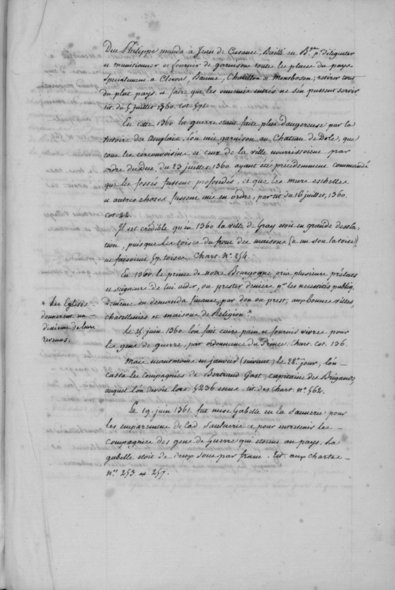 Duc Philippe manda à Jean de Cusance, Baillí en Bgne pr délegater
et munitionner et fournir de garnisons toute les places du pays
specialement à Clerval, Baume, Chatillon et Montboson; retirer tous
du plat pays, et faire que les ennemis entrés ne s'en pussent servir
tit. du 5 juillet 1360. cot.
En cette 1360 la guerre étant faite plus dangereuse par la
des anglais, l'on mit garnison au Chateau de Dole, que
tous les circonvoisins et ceux de la ville nourrissoient par
ordre du Duc du 23 juillet 1360 ayant été précédemment commandé
que les fossés fussent profondés, et que les murs eschelles
et autres choses fussent mis en ordre, par tit. du 16 juillet, 1360.
cot. 22.
Il est crédible qu'en 1360 la ville de Gray étoit en grande desola-
tion, puisque les toises du front des maisons
ne faisoient toises. Chart. N° 254.
En 1360 le prince de notre Bourgogne prie plusieurs prélats
et seigneurs de lui aider, ou prester deniers pr les necessités publiq.
de même en demanda finance, par don ou prest, aux bonnes villes,
chatellenies et maisons de Religion.*
* Les Eglises
donnerent un
dixieme de leurs
revenus.
Le 15 juin 1360 l'on fait cuire pain et fournir vivres pour
les gens de guerre, par ordonnance du Prince. Char. cot. 136.
Mais néanmoins en janvier (suivant) le 28e jour, l'on
cassa les compagnies de Bertrand Gast, capitaine des Brigans,
auquel l'on devoit lors 5236 tit. des Chart. n° 562.
Le 19 juin 1361. fut mise Gabelle en la Saunerie, pour
les emparemens de lad. Saulnerie et pour entretenir les
compagnies des gens de guerre qui etoient au pays. La
gabelle etoit de deux sous par franc. tit. aux chartes
Nos 253 et 257.